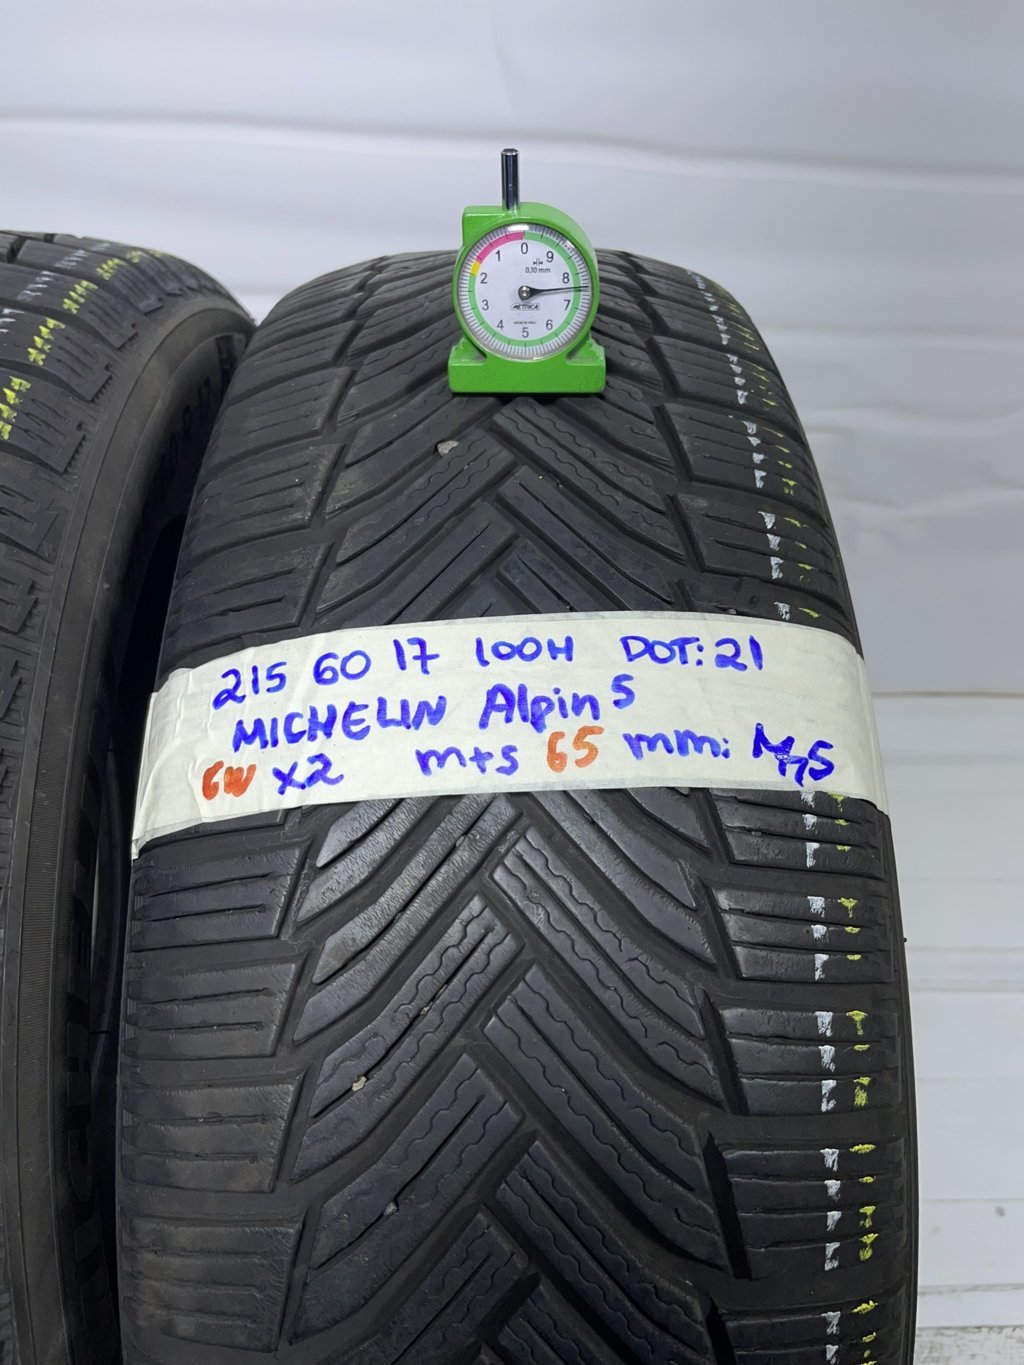 0
1
9
0,10 mm
2
8
3
METRICA
7
MADE IN ITALY
4
5
6
215 60 17 100H DOT: 21
MICHELIN Alpin 5
GW x2 m+s 65 mm: